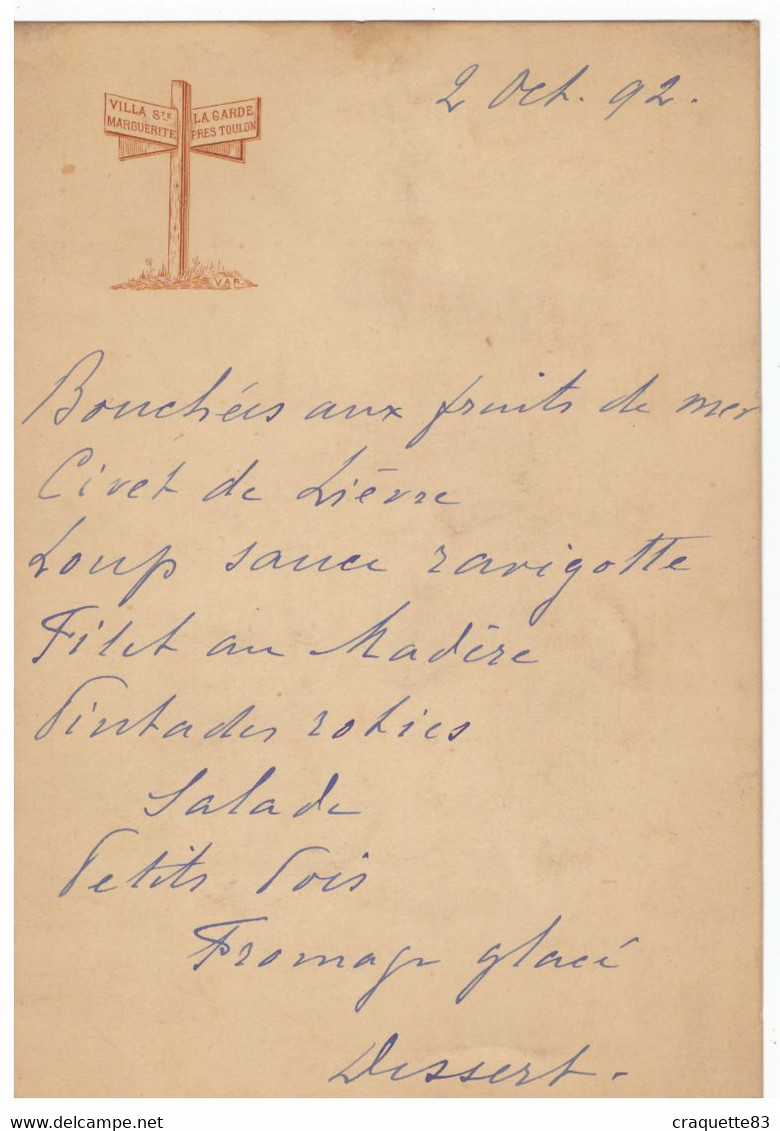 VILLA STE
MARGUERITE
LA GARDE
PRES TOULON
VAR.
2 Oct. 92.
Bouchées aux fruits de mer
Civet de Lièvre
Loup sauce ravigotte
Filet au Madère
Pintades roties
Salade
Petits Pois
Fromage glacé
Dessert.
delcampe.net
craquette83